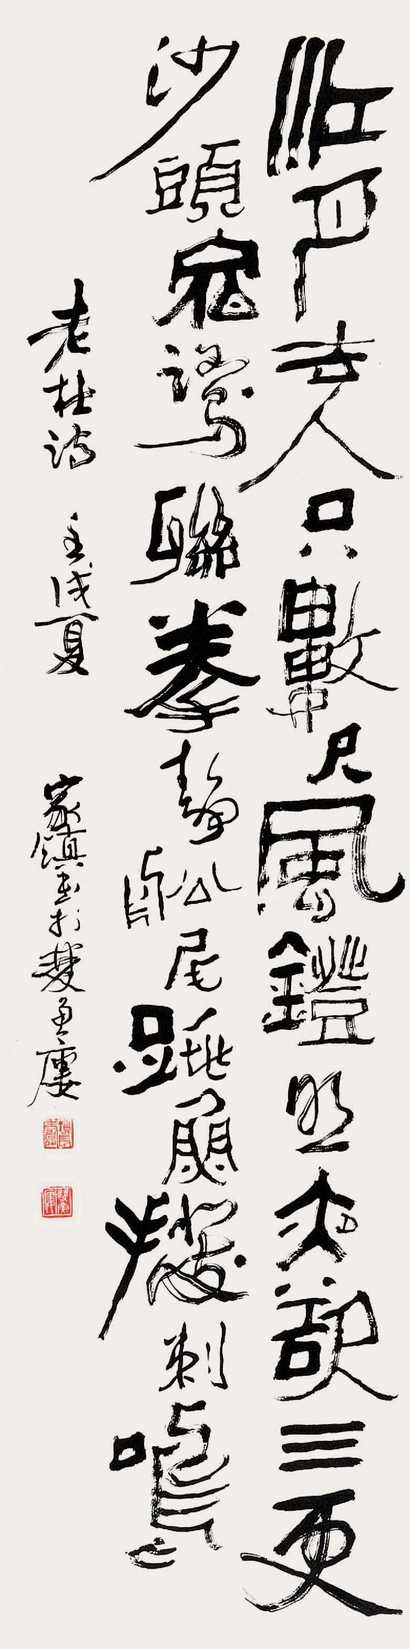 江月去人只數尺風鐙照夜欲三更
沙頭宿鷺聯拳靜船尾跳魚撥刺鳴
老杜詩 壬戌夏 家鎮書於